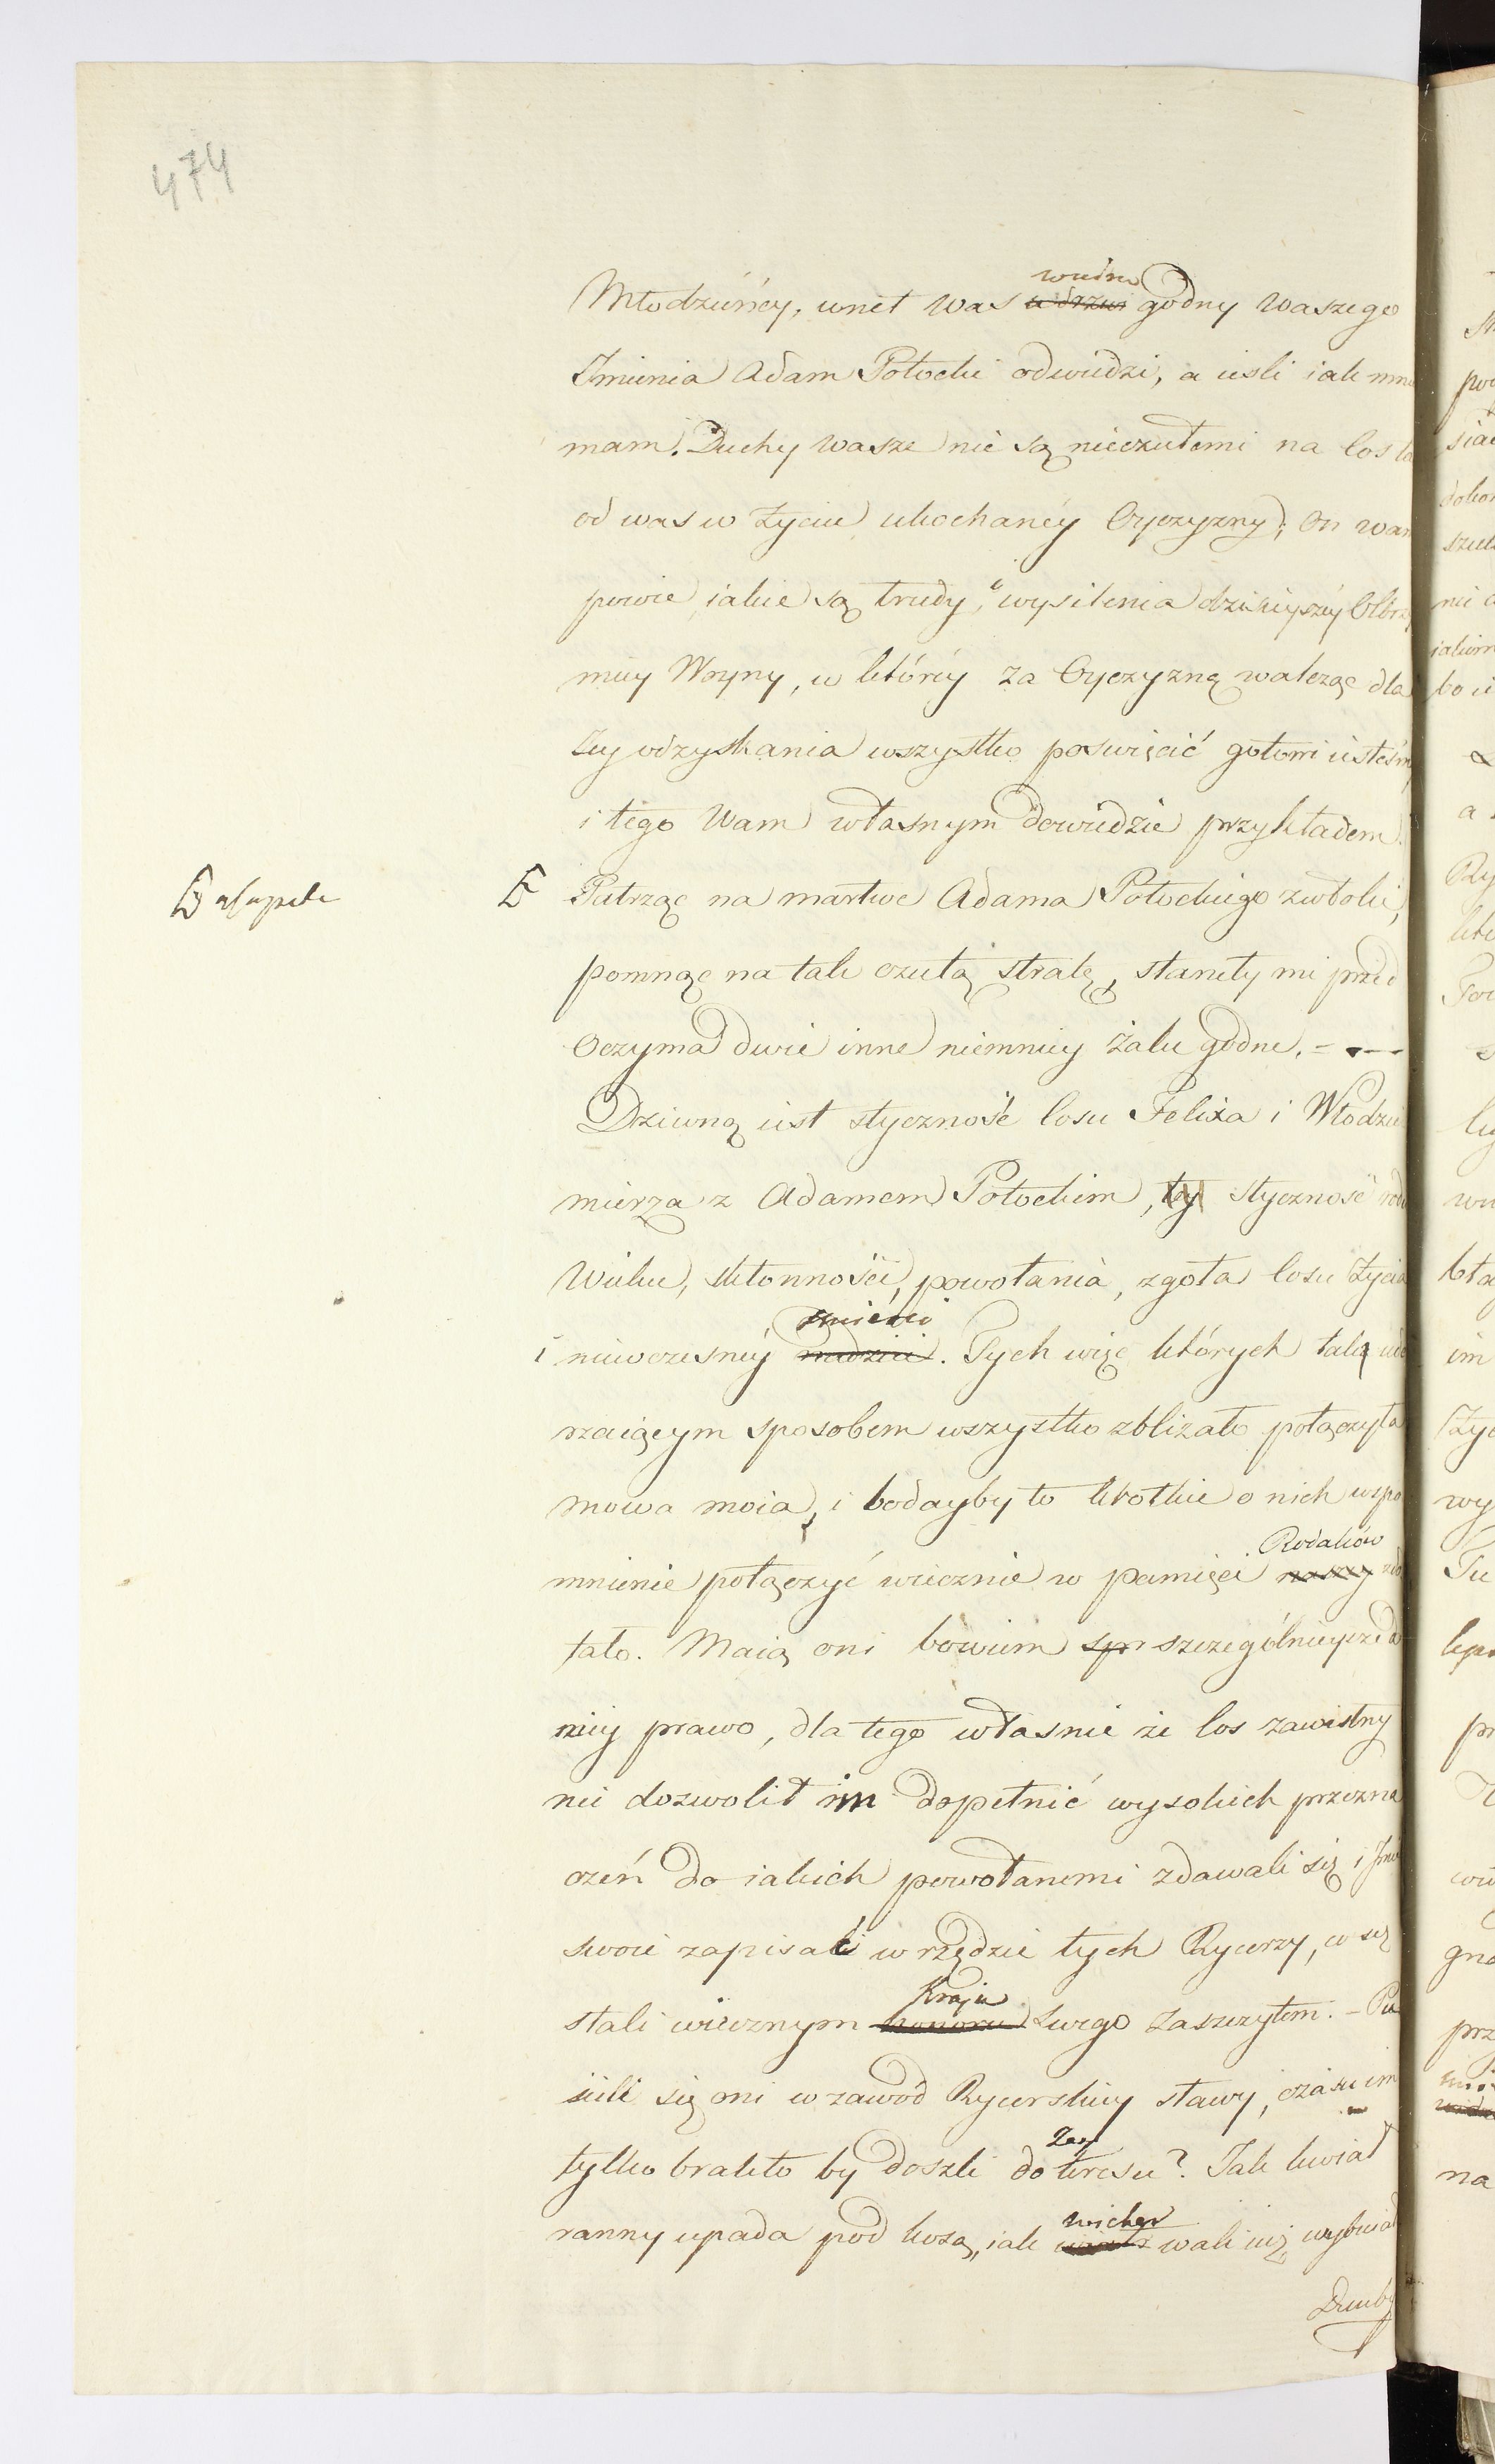 474
Młodzieńcy, wnet was godny waszego
Imienia Adam Potocki odwiedzi, a ieśli iak mnie
mam, Duchy wasze nie są nieczułemi na los
od was w życiu ukochanéy Oyczyzny; On wam
powie iakie są trudy, i wysilenia dzisieyszéy Olbrzy
miey Woyny, w któréy za Oyczyznę walcząc dla
Jey odzyskania wszystko poswięcić gotowi iesteśmy
i tego Wam własnym dowiedzie przykładem.
a capite
Patrząc na martwe Adama Potockiego zwłoki,
pomnąc na tak czułą stratę, stanęły mi przed
Oczyma dwie inne niemniey żalu godne. –
Dziwną iest styczność losu Felixa i Włodzi
mierza z Adamem Potockim, styczność rodu
Wieku, skłonności, powołania, zgoła losu życia
śmierci
i niewczesney nadziei. Tych więc których tak ude
rzaiącym sposobem wszystko zbliżało połączyła
mowa moia, i bodayby to krotkie o nich wspo
Rodaków
mnienie połączyć wiecznie w pamięci naszey zdo
łało. Maią oni bowiem szczególniey
niey prawo, dla tego własnie że los zawistny
nie dozwolił im dopełnić wysokich przezna
czeń do iakich powołanemi zdawali się i Imie
swoie zapisać w rzędzie tych Rycerzy, co są
Kraju
stali wiecznym honoru swego zaszczytem. –
ścili się oni w zawód Rycerskiey sławy, czasu im
Jey
tylko brakło by doszli do kresu? Jak kwiat
wicher
ranny upada pod kosą, iak wali iuż wybuiał
Dęby